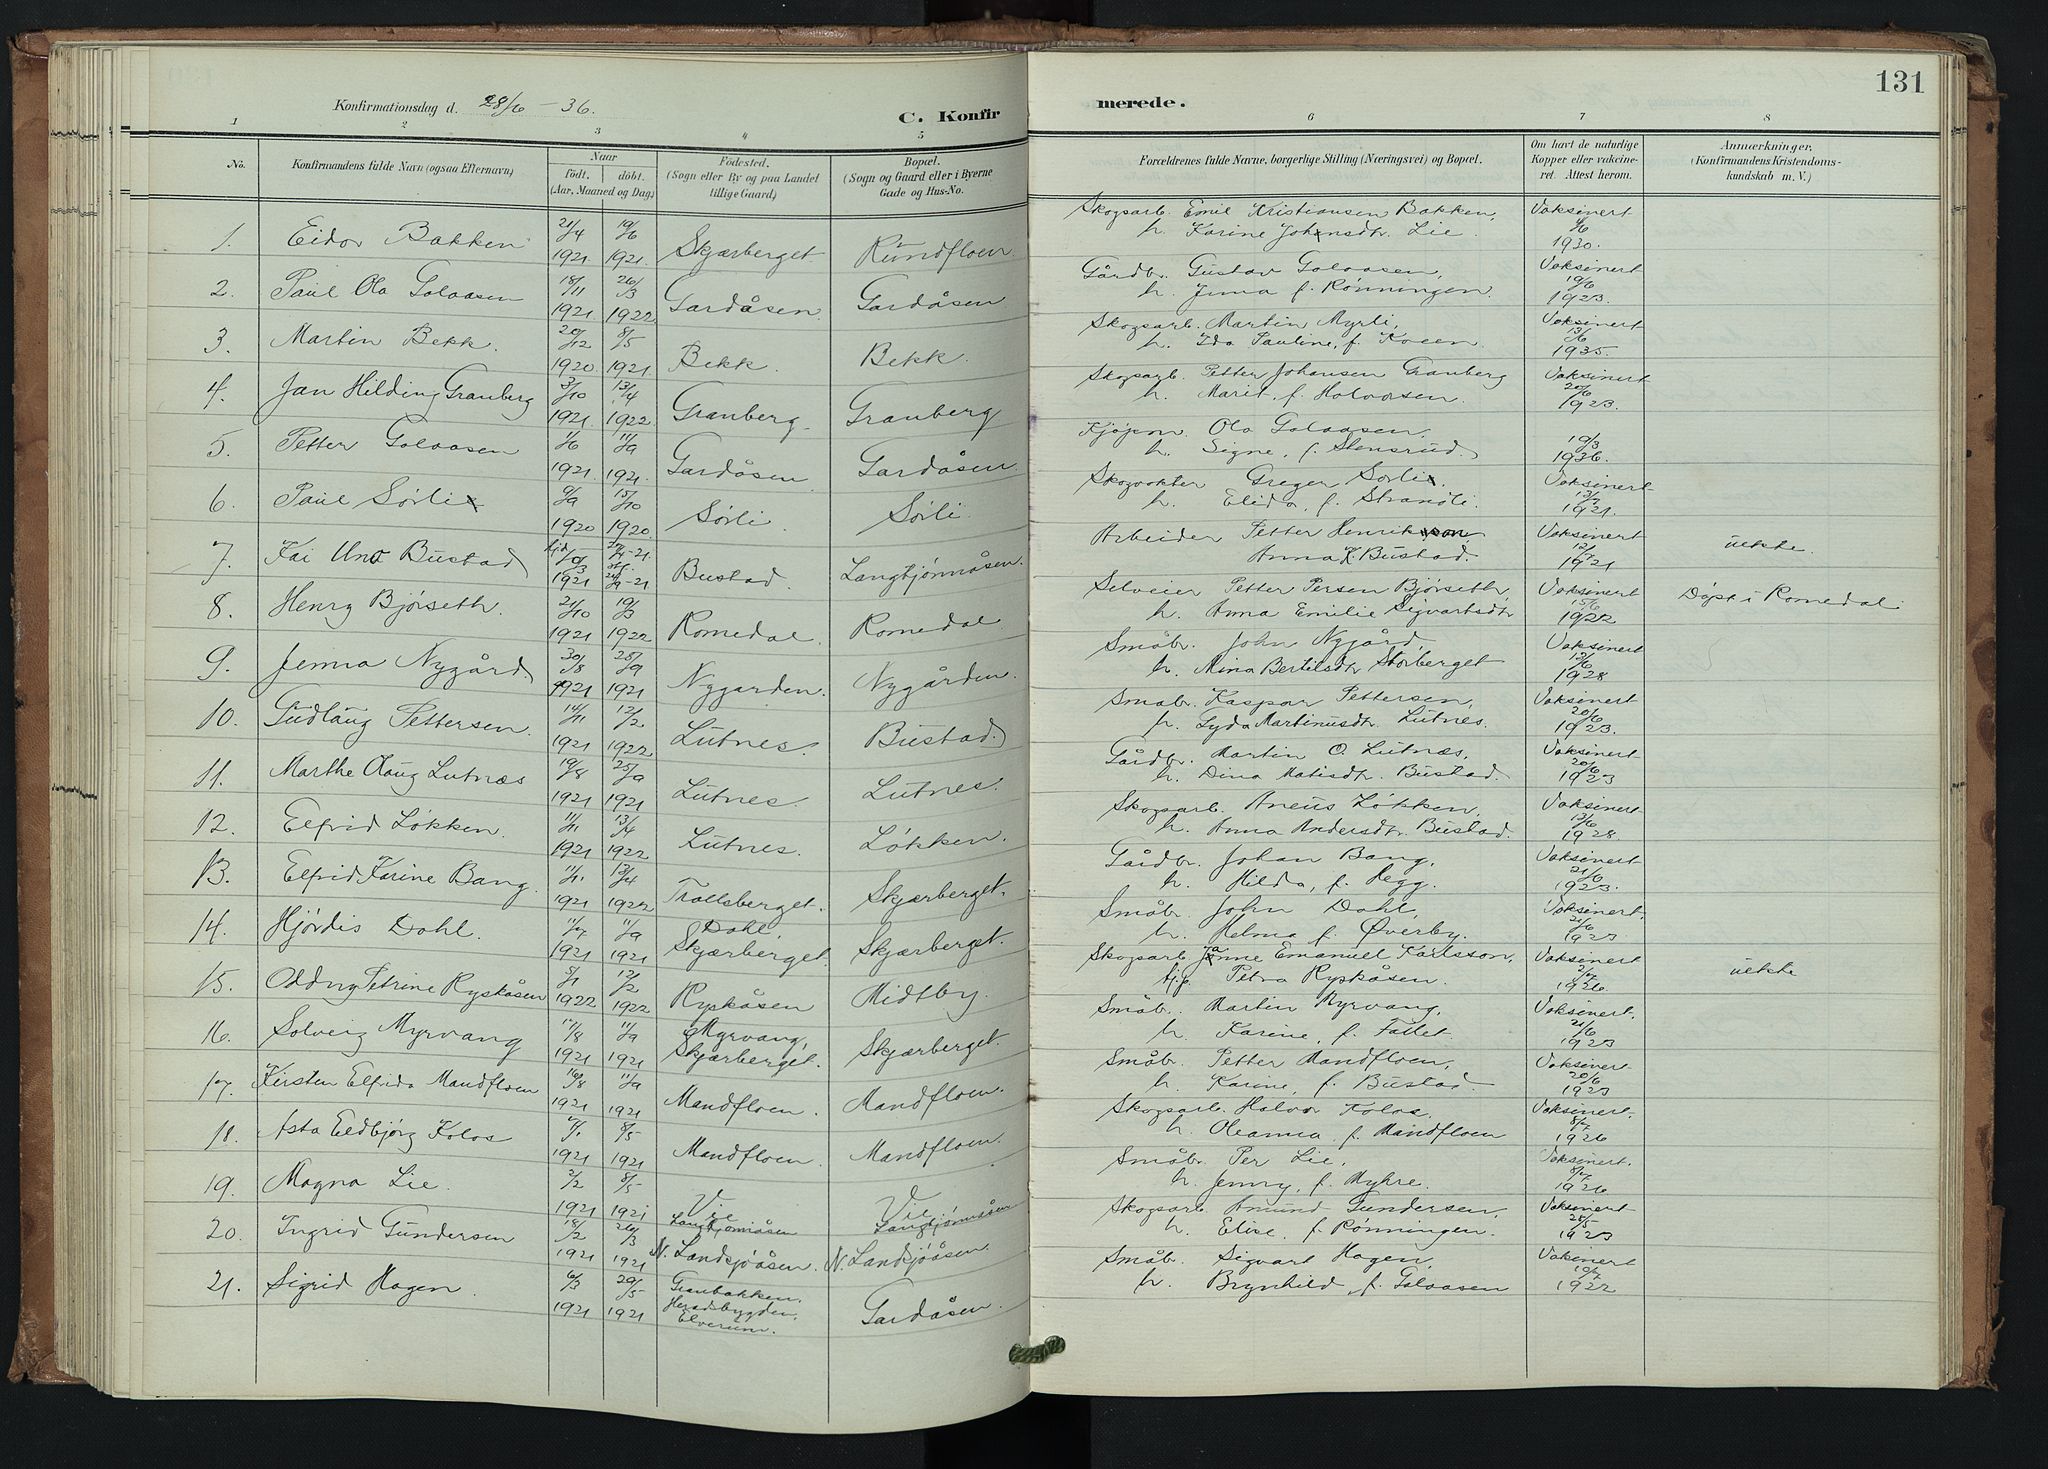 131
Konfirmationsdag d. 28/6 - 36.
C. Konfirmerede.
1 2 3 4 5 6 7 8
No. Konfirmandens fulde Navn (ogsaa Efternavn) Naar født. døbt. (Aar, Maaned og Dag) Fødested. (Sogn eller By og paa Landet tillige Gaard) Bopæl. (Sogn og Gaard eller i Byerne Gade og Hus-No. Forældrenes fulde Navne, borgerlige Stilling (Næringsvei) og Bopæl. Om havt de naturlige Kopper eller vakcineret. Attest herom. Anmærkninger. (Konfirmandens Kristendomskundskab m. V.)
1. Eidor Bakken 21/4 1921. 19/6 1921. Skjærberget Rundfloen. Skogsarb. Emil Kristiansen Bakken, h. Karine Johnsdtr. Lie. Vaksinert 1930.
2. Paul Ola Galaasen 18/11 1921. 26/3 1922. Gardåsen. Gardåsen Gårdbr. Gustav Galaasen, h. Jenna f. Rønningen. Vaksinert 19/6 1923.
3. Martin Bekk. 20/12 1920 8/5 1921 Bekk. Bekk. Skogsarb. Martin Myrli, h. Ida Pauline, f. Koeen. Vaksinert 13/6 1935.
4. Jan Hilding Granberg 3/10 1921. 13/4 1922. Granberg. Granberg Skogsarb. Petter Johansen Granberg h. Marit, f. Halvorsen. Vaksinert 20/6 1923.
5. Petter Galaasen 1/6 1921. 11/9 1921. Gardåsen Gardåsen. Kjøpm. Ola Galaasen, h. Signe, f. Stensrud. 19/3 1936.
6. Paul Sørli 9/9 1920 15/10 1920 Sørli. Sørli. Skogvokter Greger Sørli. h. Elida, f. Strandli. Vaksinert 13/7 1921.
7. Kai Uno Bustad 1921 Bustad. Langtjønnåsen. Arbeider Petter Henrikson Anna K. Bustad. Vaksinert 12/7 1921 uekte.
8. Henry Bjørseth. 21/10 1921 19/3 1922 Romedal. Romedal Selveier Petter Persen Bjørseth, h. Anna Emilie Sigvartsdtr Vaksinert 15/6 1922 Døpt i Romedal
9. Jenna Nygård 30/8 1921 25/9 1921 Nygarden. Nygården. Småbr. John Nygård, h. Mina Bertelsdtr Storberget Vaksinert 13/6 1928
10. Gudlaug Pettersen. 14/11 1921 12/2 1922 Lutnes. Bustad. Småbr. Kaspar Pettersen, h. Lyda Martinusdtr. Lutnes. Vaksinert 20/6 1923.
11. Marthe Olaug Lutnæs 19/8 1921 25/9 1921 Lutnes. Lutnes. Gårdbr. Martin O. Lutnæs, h. Dina Matisdtr. Bustad. Vaksinert 20/6 1923
12. Elfrid Løkken. 11/11 1921 13/4 1922 Lutnes. Løkken. Skogsarb. Aneus Løkken, h. Anna Andersdtr. Bustad. Vaksinert 13/6 1928
13. Elfrid Karine Bang. 11/11. 1921 13/4 1922 Trollsberget. Skjærberget. Gårdbr. Johan Bang, h. Hilda, f. Hegg. Vaksinert 21/6 1923.
14. Hjørdis Dahl. 11/7 1921 11/9 1921 Dahl, Skjærberget. Skjærberget. Småbr. John Dahl, h. Helma f. Øverby. Vaksinert. 21/6 1923
15. Oddny Petrine Ryskåsen 5/1 1922 12/2 1922 Ryskåsen Midtby. Skogsarb. Janne Emanuel Karlsson, Petra Ryskåsen. Vaksinert 2/7 1926. uekte
16. Solveig Myrvang 17/8 1921 11/9 1921 Myrvang, Skjærberget. Skjærberget. Småb. Martin Myrvang, h. Karine, f. Fallet. Vaksinert. 21/6 1923
17. Kirsten Elfrida Mandfloen 16/8 1921 11/9 1921 Mandfloen. Mandfloen. Småb. Petter Mandfloen, h. Karine, f. Bustad Vaksinert 20/6 1923
18. Asta Eldbjørg Kolos 1921 8/5 1921 Mandfloen. Mandfloen. Skogsarb. Halvor Kolos, h. Oleanna f. Mandfloen Vaksinert. 8/7 1926
19. Magna Lie. 2/2 1921 8/5 1921 Vie Langtjønnåsen Vie Langtjønnåsen Småbr. Per Lie, h. Jenny, f. Myhre. Vaksinert. 8/7 1926
20. Ingrid Gundersen 18/2 1921 26/3 1921 N. Landsjøåsen. N. Landsjøåsen. Skogsarb. Amund Gundersen, h. Elise f. Rønningen. Vaksinert 25/5 1923
21. Sigrid Hagen. 6/3 1921 29/5 1921 Granbakken, Heradsbygden, Elverum. Gardåsen. Småb. Sigvart Hagen, h. Brynhild, f. Galaasen Vaksinert 19/7 1922